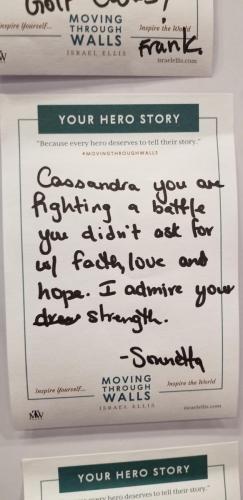 Golf
MOVING
THROUGH
WALLS
ISRAEL ELLIS
Inspire Yourself...
Inspire the World
Frank
israelellis.com
YOUR HERO STORY
"Because every hero deserves to tell their story."
#MOVINGTHROUGHWALLS
Cassandra you are
fighting a battle
you didn't ask for
w/ faith, love and
hope. I admire your
strength.
-Sonnetta
Inspire Yourself...
MOVING
THROUGH
WALLS
ISRAEL ELLIS
Inspire the World
israelellis.com
YOUR HERO STORY
every hero deserves to tell their story."